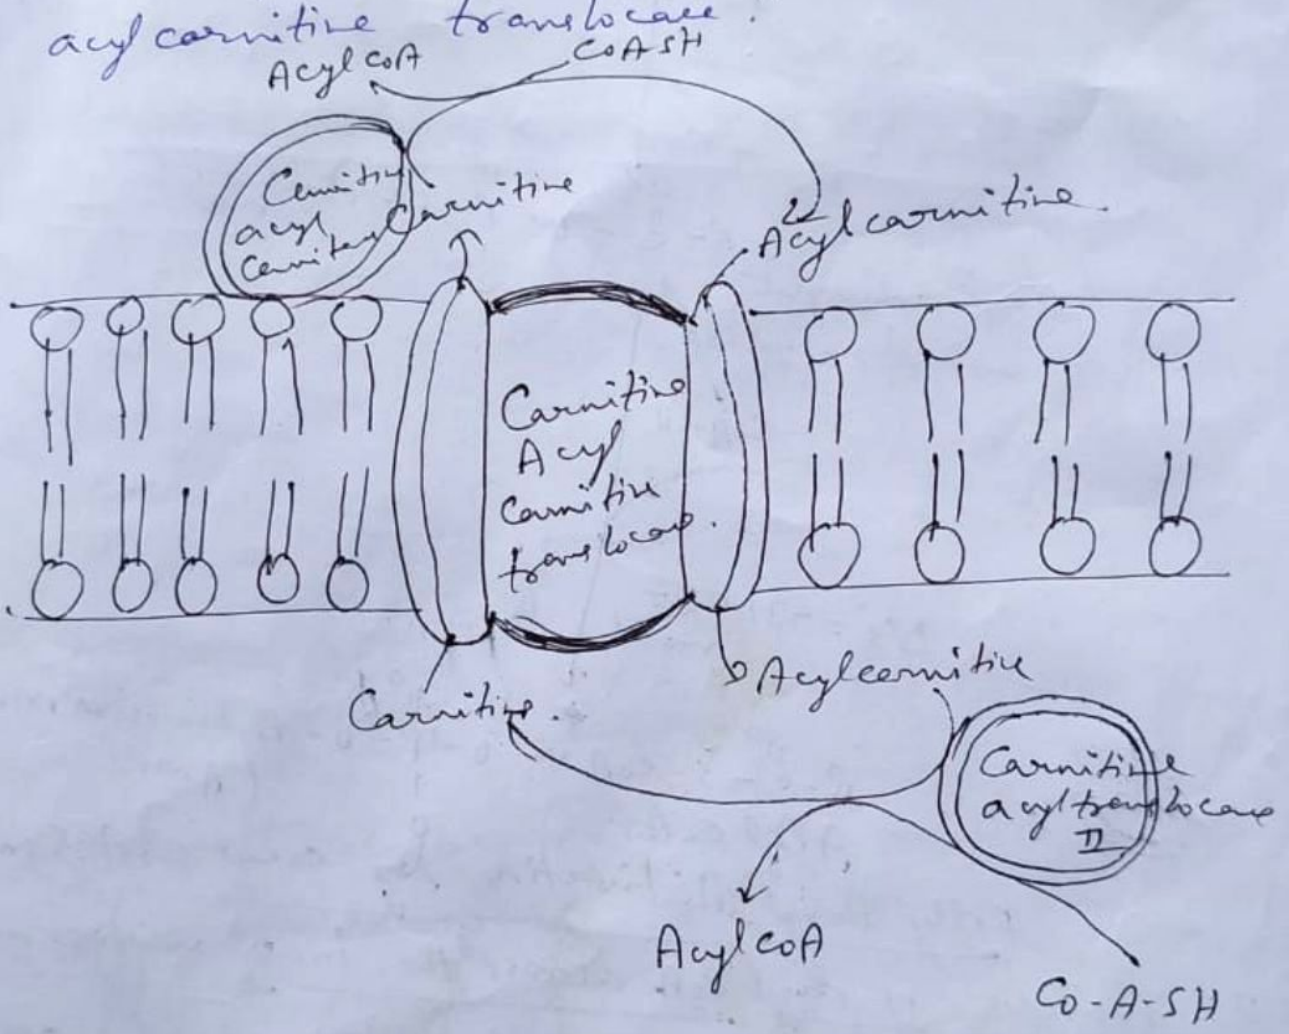 acyl carnitine translocase.
Acyl CoA
CoASH
acyl
Carnitine
Acylcarnitine.
Carnitine
Acyl
Carnitine
translocase.
Acylcarnitine
Carnitine.
Carnitine
acyltranslocase
II
Acyl CoA
Co-A-SH